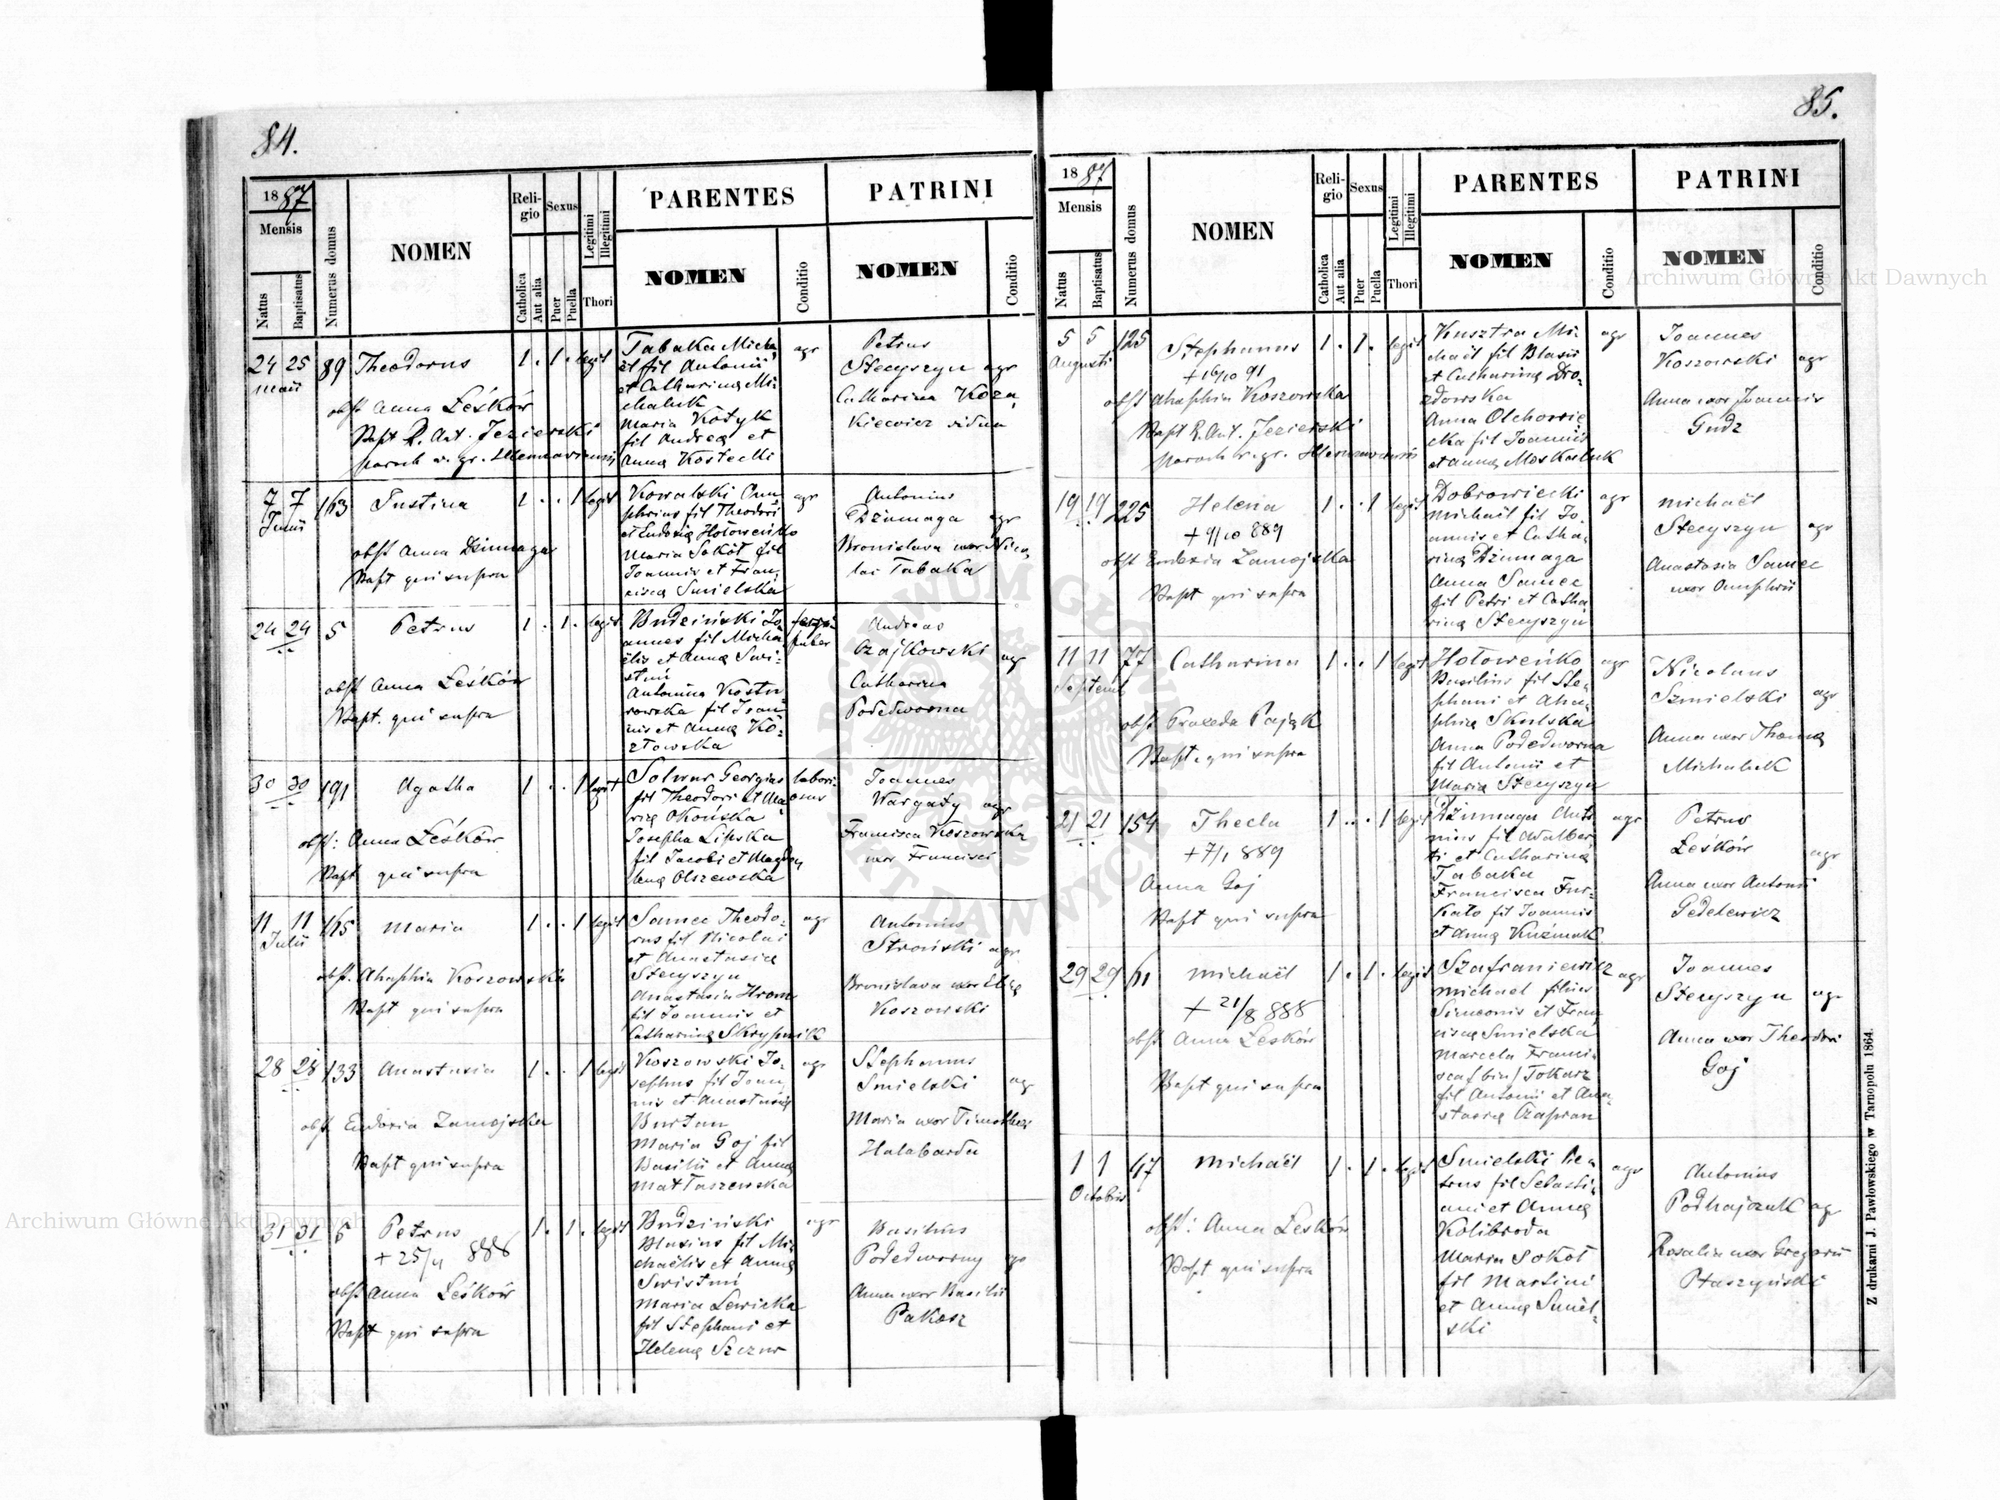 84.
1887
Mensis
Natus
Baptisatus
Numerus domus
NOMEN
Religio
Catholica
Aut alia
Sexus
Puer
Puella
Legitimi
Illegitimi
Thori
PARENTES
NOMEN
Conditio
PATRINI
NOMEN
Conditio
24 25 89 Theodorus 1 . 1 . legit
Maii
obst Anna Leśków
Bapt R. Ant. Jezierski
paroch r. gr.
Tabaka Micha
ël fil Antonii
et Catharina Mi-
chaluk
Maria Kotyk
fil Andreą et
Anna Kostecki
agr
Petrus
Stecyszyn agr
Catharina Koza
kiewicz vidua
7 7 163 Justina 1 . . 1 legit
Junii
obst Anna Dziumaga
Bapt qui supra
Kowalski Onu
phrius fil Theodori
et Eudoxią Hołowenko
Maria Sokół fil
Joannis et Fran
cisca Smielska
agr
Antonius
Dziumaga agr
Bronislava uxor Nico
lai Tabaka
24 24 5 Petrus 1 . 1 . legit
obst Anna Leśków
Bapt. qui supra
Budziński Jo
annes fil Micha
ëlis et Anną Swi-
stun
Antonina Kostu
rowska fil Joan
nis et Anną Ko-
złowska
Andreas
Czajkowski agr
Catharina
Podedworna
30 30 191 Agatha 1 . . 1 legit
obst: Anna Leśków
Bapt qui supra
Solwur Georgius
fil Theodori et Ma
rią Okońska
Josepha Lipska
fil Jacobi et Magda
leną Olszewska
labori
osus
Joannes
Wargaty agr
Francisca Koszowska
uxor Francisci
11 11 165 Maria 1 . . 1 legit
Julii
obst. Ahaphia Koszowska
Bapt qui supra
Samec Theodo-
rus fil Nicolai
et Anastasia
Stecyszyn
Anastasia Hrom
fil Joannis et
Catharina Skrypnik
agr
Antonius
Stroński agr
Bronislava uxor
Koszowski
28 28 133 Anastasia 1 . . 1 legit
obst. Eudoxia Zamojska
Bapt qui supra
Koszowski Jo-
sephus fil Joan
nis et Anastasią
Burtan
Maria Goj fil
Basilii et Anną
Matłaszewska
agr
Stephanus
Smielski agr
Maria uxor Timothei
Halabarda
31 31 6 Petrus 1 . 1 . legit
+ 25/4 888
obst Anna Leśków
Bapt qui supra
Budziński
Blasius fil Mi-
chaëlis et Anną
Swistun
Maria Lewicka
fil Stephani et
Heleną Szczur
agr
Basilius
Podedworny agr
Anna uxor Basilii
Pakosz
85.
1887
Mensis
Natus
Baptisatus
Numerus domus
NOMEN
Religio
Catholica
Aut alia
Sexus
Puer
Puella
Legitimi
Illegitimi
Thori
PARENTES
NOMEN
Conditio
PATRINI
NOMEN
Conditio
5 5 125 Stephanus 1 . 1 . legit
Augusti
+ 16/10 91
obst Ahaphia Koszowska
Bapt R. Ant. Jezierski
paroch r. gr.
Kusztra Mi-
chaël fil Blasii
et Catharina Dro-
zdowska
Anna Olchowie
cka fil Joannis
et Anną Moskaluk
agr
Joannes
Koszowski agr
Anna uxor Joannis
Gudz
19 19 225 Helena 1 . . 1 legit
+ 9/10 889
obst Eudoxia Zamojska
Bapt qui supra
Dobrowiecki
Michaël fil Jo-
annis et Catha-
rina Dziumaga
Anna Samec
fil Petri et Catha
rina Stecyszyn
agr
Michaël
Stecyszyn agr
Anastasia Samec
uxor Onuphrii
11 11 77 Catharina 1 . . 1 legit
Septemb
obst Praxeda Pająk
Bapt. qui supra
Hołowenko
Basilius fil Ste-
phani et Aha-
phią Skulska
Anna Podedworna
fil Antonii et
Marią Stecyszyn
agr
Nicolaus
Szmielski agr
Anna uxor Thomą
Michaluk
21 21 154 Thecla 1 . . 1 legit
+ 7/1 889
Anna Goj
Bapt qui supra
Dziumaga Anto
nius fil Adalber-
ti et Catharina
Tabaka
Francisca Fur-
kało fil Joannis
et Anną Kuźniak
agr
Petrus
Leśków agr
Anna uxor Antonii
Gedelewicz
29 29 61 Michaël 1 . 1 . legit
+ 21/8 888
obst Anna Leśków
Bapt qui supra
Szafraniewicz
Michael filius
Simeonis et Fran
cisca Smielska
Marcela Franci-
sca (bin) Tokarz
fil Antonii et Ana-
stasią Czapran
agr
Joannes
Stecyszyn agr
Anna uxor Theodori
Goj
1 1 47 Michaël 1 . 1 . legit
Octobris
obst: Anna Leśków
Bapt qui supra
Smielski Pe-
trus fil Sebasti-
ani et Anną
Kolibroda
Maria Sokół
fil Martini
et Anną Smiel-
ski
agr
Antonius
Podhajczuk agr
Rosalia uxor Gregorii
Ptaszyński
Z drukarni J. Pawłowskiego w Tarnopolu 1864.
Archiwum Główne Akt Dawnych
Archiwum Główne Akt Dawnych
ARCHIWUM GŁÓWNE AKT DAWNYCH